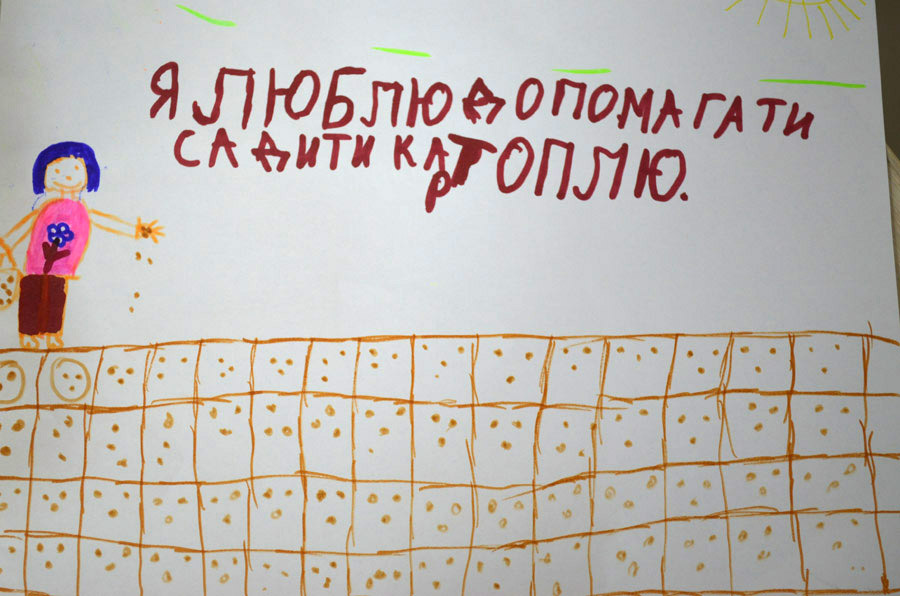 Я ЛЮБЛЮ ДОПОМАГАТИ
САДИТИ КАРТОПЛЮ.